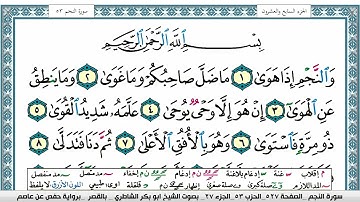 سورة النجم ٥٣
الجزء السابع والعشرون
بِسْمِ ٱللَّهِ ٱلرَّحْمَٰنِ ٱلرَّحِيمِ
وَٱلنَّجْمِ إِذَا هَوَىٰ ١ مَا ضَلَّ صَاحِبُكُمْ وَمَا غَوَىٰ ٢ وَمَا يَنطِقُ
عَنِ ٱلْهَوَىٰٓ ٣ إِنْ هُوَ إِلَّا وَحْىٌ يُوحَىٰ ٤ عَلَّمَهُۥ شَدِيدُ ٱلْقُوَىٰ ٥
ذُو مِرَّةٍ فَٱسْتَوَىٰ ٦ وَهُوَ بِٱلْأُفُقِ ٱلْأَعْلَىٰ ٧ ثُمَّ دَنَا فَتَدَلَّىٰ ٨
سورة النجم الصفحة ٥٢٧ الحزب ٥٣ الجزء ٢٧ بصوت الشيخ أبو بكر الشاطري بالقصر برواية حفص عن عاصم